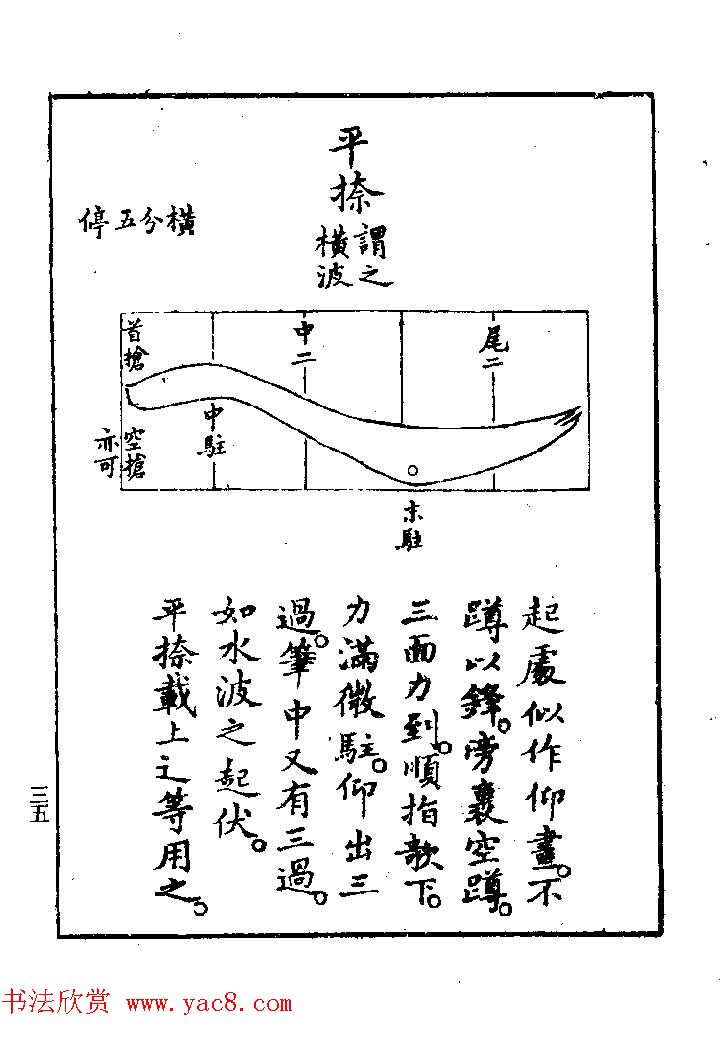 平捺
謂之
橫波
橫分五停
首搶
空搶
亦可
中駐
中二
尾二
末駐
起處似作仰畫。不
蹲以鋒。旁裏空蹲。
三面力到。順指歕下。
力滿微駐。仰出三
過。筆中又有三過。
如水波之起伏。
平捺載上辶等用之。
三五
书法欣赏 www.yac8.com